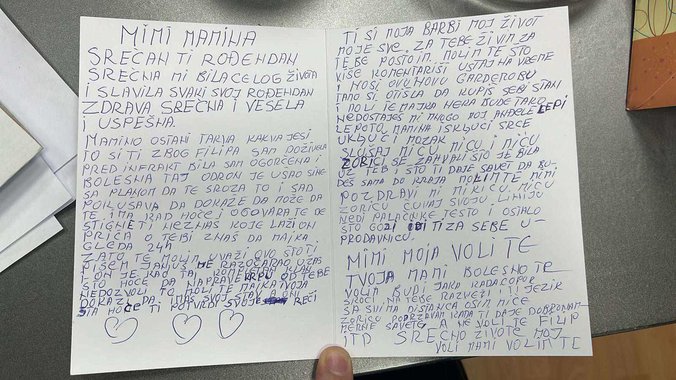 MIMI MAMINA
SREĆAN TI ROĐENDAN
SREĆNA MI BILA CELOG ŽIVOTA
I SLAVILA SVAKI SVOJ ROĐENDAN
ZDRAVA SREĆNA I VESELA
I USPEŠNA.
MAMINO OSTANI TAKVA KAKVA JESI
TO SI TI ZBOG FILIPA SAM DOŽIVELA
PRED INFRAKT BILA SAM OGORČENA I
BOLESNA TAJ ODRON JE UŠAO
SA PLANOM DA TE SROZA TO I SAD
POKUŠAVA DA DOKAŽE DA MOŽE DA
TE IMA KAD HOĆE I OGOVARA TE DE
STIGNE TI NEZNAŠ KOJE LAŽI ON
PRIČA O TEBI ZNAŠ DA MAJKA
GLEDA 24h
ZATO TE MOLIM UVAŽI OVO ŠTO TI
PIŠEM JANJUŠ ME RAZOČARAO UŽAS
I ON JE KAO TAJ
ŠTO HOĆE DA NAPRAVE KRPU OD TEBE
NEDOZVOLI TO MOLI TE MAJKA TVOJA
DOKAŽI DA IMAŠ SVOJ STAV A ONI
ŠTA HOĆE TI POTVRDI SVOJE REČI
TI SI MOJA BARBI MOJ ŽIVOT
MOJE SVE. ZA TEBE ŽIVIM ZA
TEBE POSTOIM. MOLIM TE ŠTO
VIŠE KOMENTARIŠI USTAJ NA VREME
I NOSI OVU NOVU GARDEROBU
TAMO SI OTIŠLA DA KUPIŠ SEBI STAN
I MOLI TE MAJKA NEKA BUDE TAKO
NEDOSTAJEŠ MI MNOGO MOJ ANĐELE LEPI
LEPOTO MAMINA ISKLJUČI SRCE
UKLJUČI MOZAK
SLUŠAJ MIĆU MIĆU I MIĆU
ZORICI SE ZAHVALI ŠTO JE BILA
UZ TEBE I ŠTO TI DAJE SAVET DA BU-
DEŠ SAMA DO KRAJA MOLIM TE MIMI
POZDRAVI MI MIKICU MIĆU
ZORICU ČUVAJ SVOJU LINIJU
NEDI PALAČINKE TESTO I OSTALO
ŠTO GOJI IZA SEBE U-
PRODAVNICU.
MIMI MOJA VOLI TE
TVOJA MAMI BOLESNO TE
VOLIM BUDI JAKA KADA ČOPOR
SKOČI NA TEBE RAZVEŽI I JEZIK
SA SVIMA DISTANCA OSIM MIĆE
ZORICU PODRŽAVAM KADA TI DAJE DOBRONAM-
MERNE SAVETE, A NE VOLI TE FILIP
ITD SREĆNO ŽIVOTE MOJ
VOLI MAMI VOLIM TE